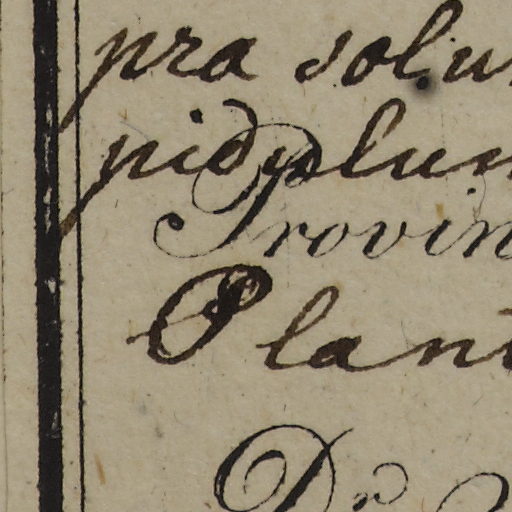 pra solu
pidulum
Provin
Plant
Dr